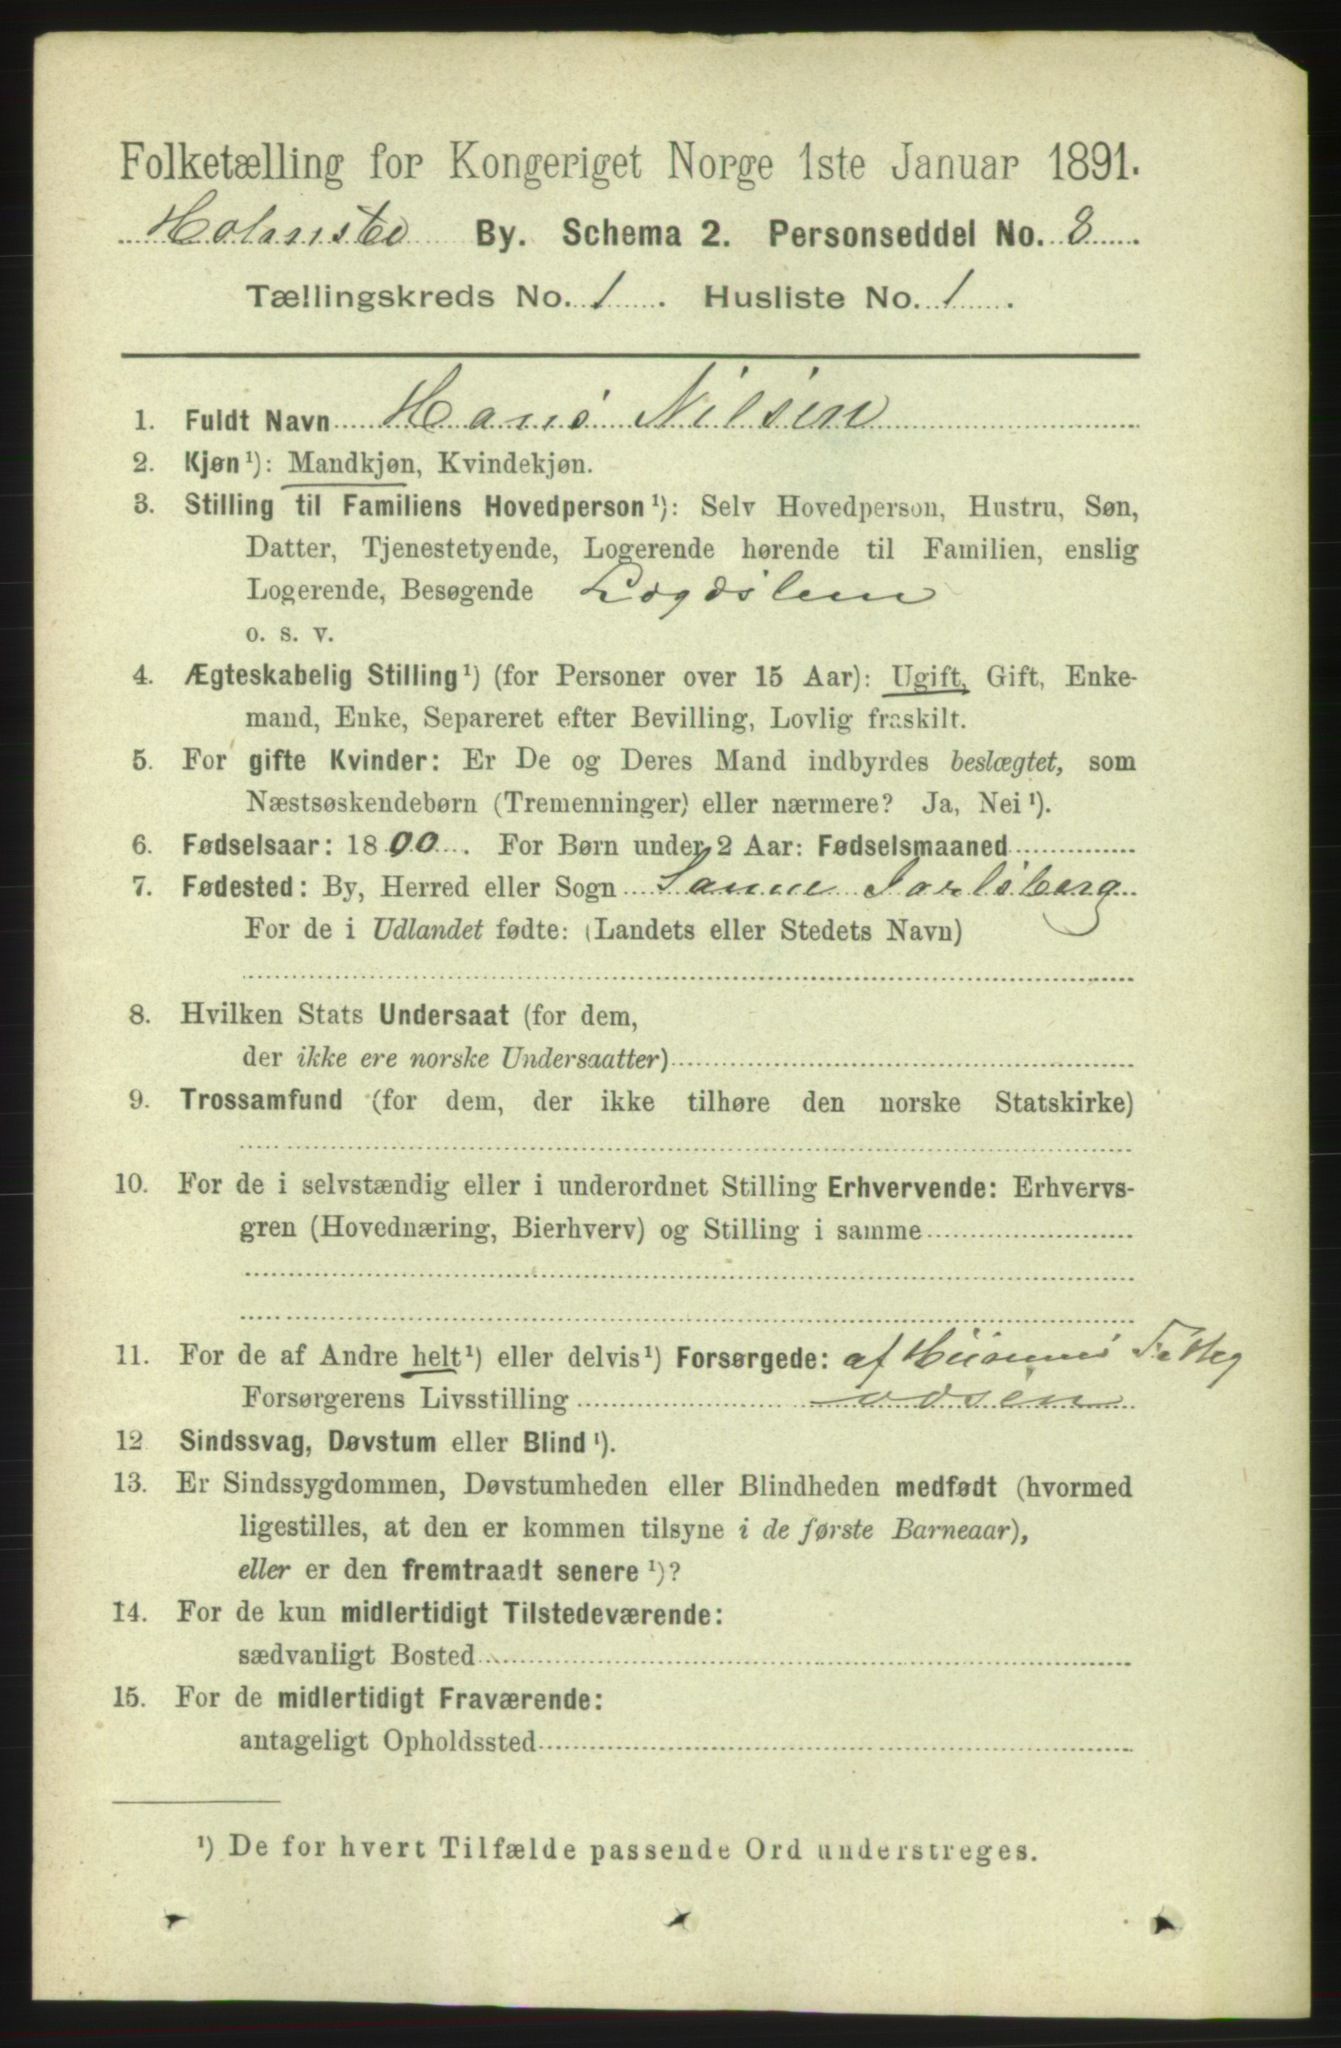 Folketælling for Kongeriget Norge 1ste Januar 1891.
Holmsbo By. Schema 2. Personseddel No. 8
Tællingskreds No. 1. Husliste No. 1.
1. Fuldt Navn Hans Nilsen
2. Kjøn¹): Mandkjøn, Kvindekjøn.
3. Stilling til Familiens Hovedperson¹): Selv Hovedperson, Hustru, Søn,
Datter, Tjenestetyende, Logerende hørende til Familien, enslig
Logerende, Besøgende Lægdslem
o. s. v.
4. Ægteskabelig Stilling¹) (for Personer over 15 Aar): Ugift, Gift, Enke-
mand, Enke, Separeret efter Bevilling, Lovlig fraskilt.
5. For gifte Kvinder: Er De og Deres Mand indbyrdes beslægtet, som
Næstsøskendebørn (Tremenninger) eller nærmere? Ja, Nei¹).
6. Fødselsaar: 1800. For Børn under 2 Aar: Fødselsmaaned
7. Fødested: By, Herred eller Sogn Sanne Jarlsberg
For de i Udlandet fødte: (Landets eller Stedets Navn)
8. Hvilken Stats Undersaat (for dem,
der ikke ere norske Undersaatter)
9. Trossamfund (for dem, der ikke tilhøre den norske Statskirke)
10. For de i selvstændig eller i underordnet Stilling Erhvervende: Erhvervs-
gren (Hovednæring, Bierhverv) og Stilling i samme
11. For de af Andre helt¹) eller delvis¹) Forsørgede: af Hurums Fattig
Forsørgerens Livsstilling væsen
12 Sindssvag, Døvstum eller Blind¹).
13. Er Sindssygdommen, Døvstumheden eller Blindheden medfødt (hvormed
ligestilles, at den er kommen tilsyne i de første Barneaar),
eller er den fremtraadt senere¹)?
14. For de kun midlertidigt Tilstedeværende:
sædvanligt Bosted
15. For de midlertidigt Fraværende:
antageligt Opholdssted
¹) De for hvert Tilfælde passende Ord understreges.